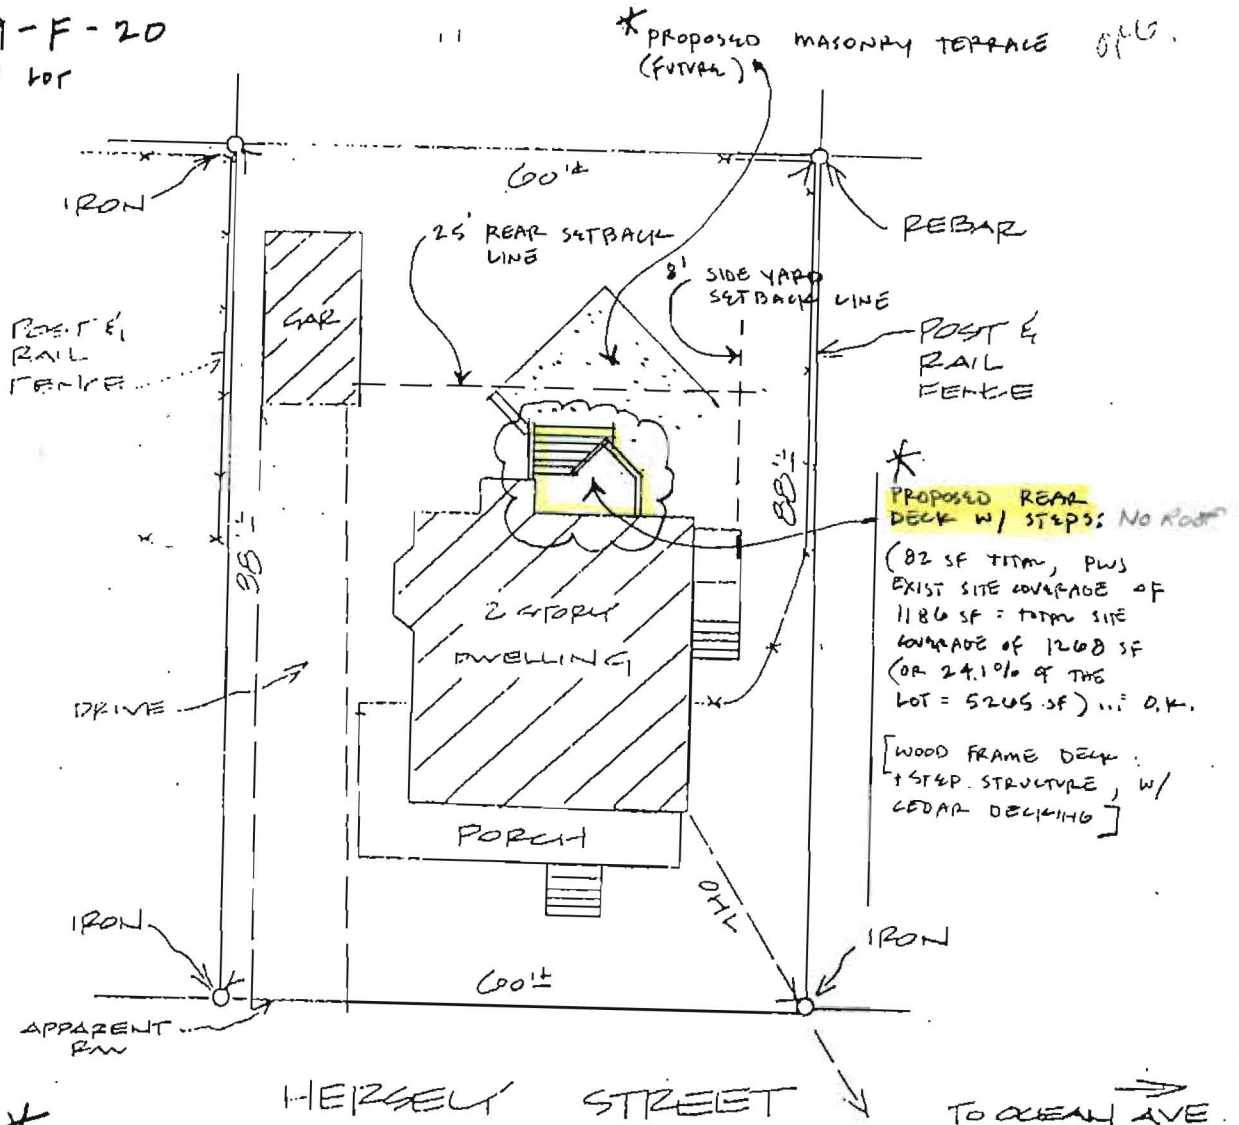 -F-20
LOT
* PROPOSED MASONRY TERRACE
(FUTURE)
60'±
IRON
REBAR
25' REAR SETBACK
LINE
8' SIDE YARD
SETBACK LINE
GAR
POST &
RAIL
FENCE
POST &
RAIL
FENCE
88'±
88'±
*
PROPOSED REAR
DECK W/ STEPS: NO ROOF
(82 SF TOTAL, PLUS
EXIST SITE COVERAGE OF
1186 SF = TOTAL SITE
COVERAGE OF 1268 SF
(OR 24.1% OF THE
LOT = 5265 SF) ... O.K.
[WOOD FRAME DECK
+ STEP STRUCTURE, W/
CEDAR DECKING]
2 STORY
DWELLING
DRIVE
PORCH
OHL
IRON
IRON
60'±
APPARENT
R/W
HERSELY STREET
TO OCEAN AVE.
*